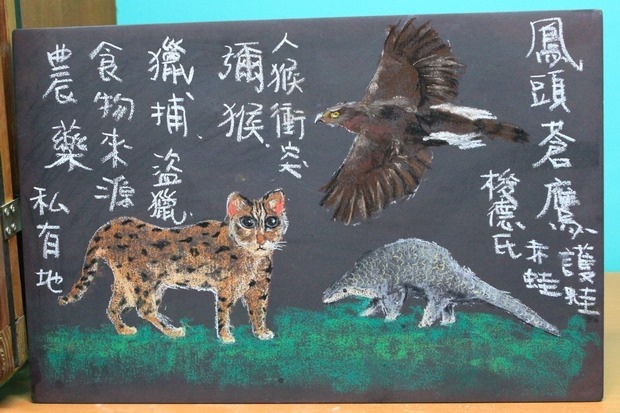 鳳頭蒼鷹
護蛙
梭德氏
赤蛙
人猴衝突
彌猴
獵捕、盜獵
食物來源
農藥
私有地